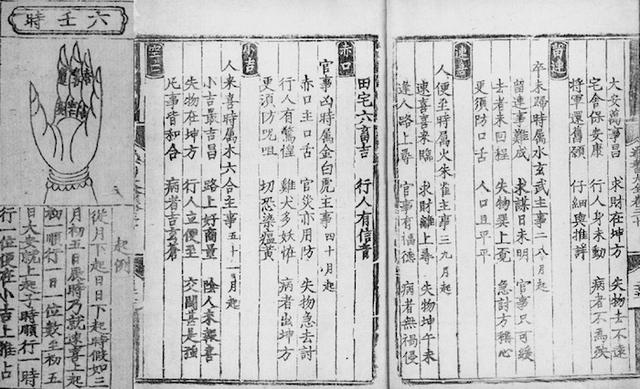 大安萬事昌 求財在坤方 失物去不遠
宅舍保安康 行人身未動 病者不為疾
將軍還舊願 仔細與推詳
留連
卒未歸時屬水玄武主事二八月起
留連事難成 求謀日未明 官事只可緩
去者未回程 失物巽上覓 急討方稱心
更須防口舌 人口且平平
速喜
人便至時屬火朱雀主事三九月起
速喜喜來臨 求財離上尋 失物坤午未
逢人路上尋 官事有福德 病者無禍侵
田宅六畜吉 行人有信音
赤口
官事凶時屬金白虎主事四十月起
赤口主口舌 官災亦用防 失物急去討
行人有驚惶 雞犬多妖怪 病者出坤方
更須防咒咀 切恐染瘟黃
小吉
人來喜時屬木六合主事五十一月起
小吉最吉昌 路上好商量 陰人來報喜
失物在坤方 行人立便至 交關甚是強
凡事皆和合 病者告穹蒼
空亡
六壬時
起例
從月下起日日下起時假如三
月初五日辰時乃就速喜上起
初一順行一日一位數至初五
日大安就上起子時順行一時
行一位便在小吉上推占